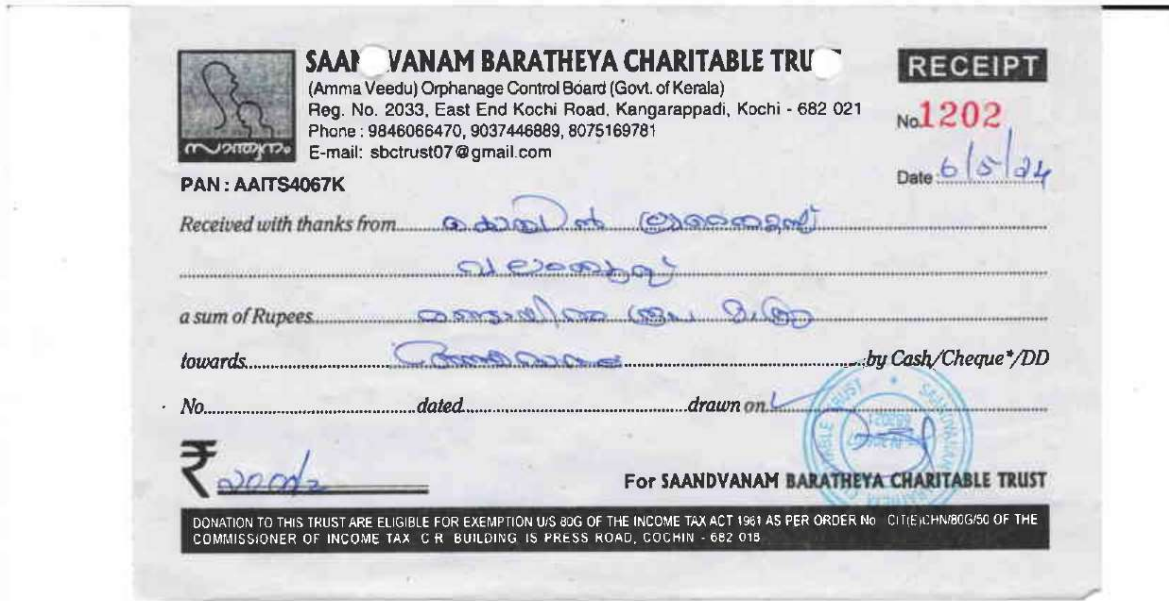 SAANDVANAM BARATHEYA CHARITABLE TRUST
(Amma Veedu) Orphanage Control Board (Govt. of Kerala)
Reg. No. 2033, East End Kochi Road, Kangarappadi, Kochi - 682 021
Phone : 9846066470, 9037446889, 8075169781
E-mail: sbctrust07@gmail.com
സാന്ത്വനം
RECEIPT
No. 1202
Date 6/5/24
PAN : AAITS4067K
Received with thanks from
a sum of Rupees
towards by Cash/Cheque*/DD
No. dated drawn on
₹ 2000/=
For SAANDVANAM BARATHEYA CHARITABLE TRUST
DONATION TO THIS TRUST ARE ELIGIBLE FOR EXEMPTION U/S 80G OF THE INCOME TAX ACT 1961 AS PER ORDER No CIT(E)CHN/80G/50 OF THE
COMMISSIONER OF INCOME TAX C R BUILDING IS PRESS ROAD, COCHIN - 682 018